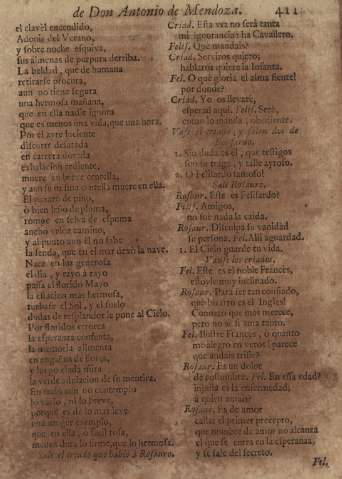 de Don Antonio de Mendoza. 411
el clavel encendido,
Adonis del Verano,
y sobre noche esquiva,
sus almenas de purpura derriba.
La beldad, que de humana
retirarse procura,
aun no tiene segura
una hermosa mañana,
que en ella nadie ignora
que es menos una vida, que una hora.
Por el ayre luciente
discurre dilatada
en carrera dorada
exhalacion ardiente,
muere en breve centella,
y aun su misma estrella muere en ella.
de pino,
ò bien
rompe en selva de espuma
ancho veloz camino,
y al punto aun èl no sabe
la senda, que en el mar dexò la nave.
Nace en luz generosa
el dia, y rayo à rayo
passa al florido Mayo
la estacion mas hermosa,
turbase el Sol, y el suelo
dudas de resplandecer le pone al Cielo.
Por floridos errores
la esperanza
la memoria alimenta
en engaños de
y luego
la verde adulacion de su mentira.
En todo aun no contemplo
lo vario, ni lo breve,
porque es de lo mas leve
exemplo,
que en ella, ò facil rosa,
menos dura lo siente, que lo hermoso.
Sale el criado que hablò à Rosauro.
Criad. Esta vez no serà tanta
mi ignorancia: ha Cavallero.
Felis. Que mandais?
Criad. Serviros quiero;
hablaros quiere la Infanta.
Fel. O què gloria el alma siente!
por donde?
Criad. Yo os llevarè,
esperad aqui. Felis. Serè,
en lo manda, obediente.
Vase el criado, y salen dos de
1. Sin duda es èl, que testigos
son su trage, y talle ayroso.
2. O Felisardo famoso!
Sale Rosauro.
Rosaur. Este es Felisardo?
Felis. Amigos,
no soy nada
Rosaur. Disculpa su vanidad
su persona. Fel. Alli aguardad.
1. El Cielo guarde tu vida.
Vanse los criados.
Fel. Este es el noble Francès,
muy inclinado.
Rosaur. Para ser tan confiado,
què bizarro es el Inglès!
Confiesso que mas merece,
pero no se si ama tanto.
Fel. Ilustre Francès, ò quanto
me alegro en veros! parece
que andais triste?
Rosaur. Es un dolor
de costumbre. Fel. En essa edad?
injusta es la enfermedad,
à quien amais?
Rosaur. Es de amor
callar el primer precepto,
que muger de amor no alcanza
el que se entra en la esperanza,
y se sale del secreto.
Fil.